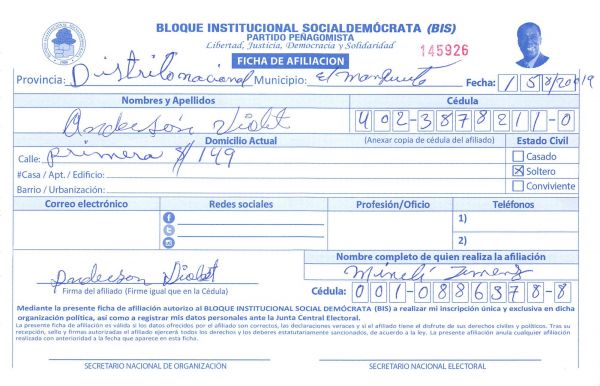 BLOQUE INSTITUCIONAL SOCIALDEMÓCRATA (BIS)
PARTIDO PEÑAGOMISTA
Libertad, Justicia, Democracia y Solidaridad
145926
FICHA DE AFILIACION
Provincia: Distrito nacional Municipio: El Fecha: 1 5 8/2019
Nombres y Apellidos Cédula
Anderson Violet 402-3878211-0
Domicilio Actual (Anexar copia de cédula del afiliado) Estado Civil
Calle: primera # 149 Casado
#Casa / Apt. / Edificio: Soltero
Barrio / Urbanización: Conviviente
Correo electrónico Redes sociales Profesión/Oficio Teléfonos
1)
2)
Nombre completo de quien realiza la afiliación
Anderson Violet
Firma del afiliado (Firme igual que en la Cédula) Cédula: 001-0886378-8
Mediante la presente ficha de afiliación autorizo al BLOQUE INSTITUCIONAL SOCIAL DEMÓCRATA (BIS) a realizar mi inscripción única y exclusiva en dicha
organización política, así como a registrar mis datos personales ante la Junta Central Electoral.
La presente ficha de afiliación es válida si los datos ofrecidos por el afiliado son correctos, las declaraciones veraces y si el afiliado tiene el disfrute de sus derechos civiles y políticos. Tras su
recepción, sello y firmas autorizadas el afiliado ejercerá todos los derechos y los deberes estatutariamente sancionados, de acuerdo a la ley. La presente afiliación anula cualquier afiliación
realizada con anterioridad a la fecha que aparece en esta ficha.
SECRETARIO NACIONAL DE ORGANIZACIÓN SECRETARIO NACIONAL ELECTORAL